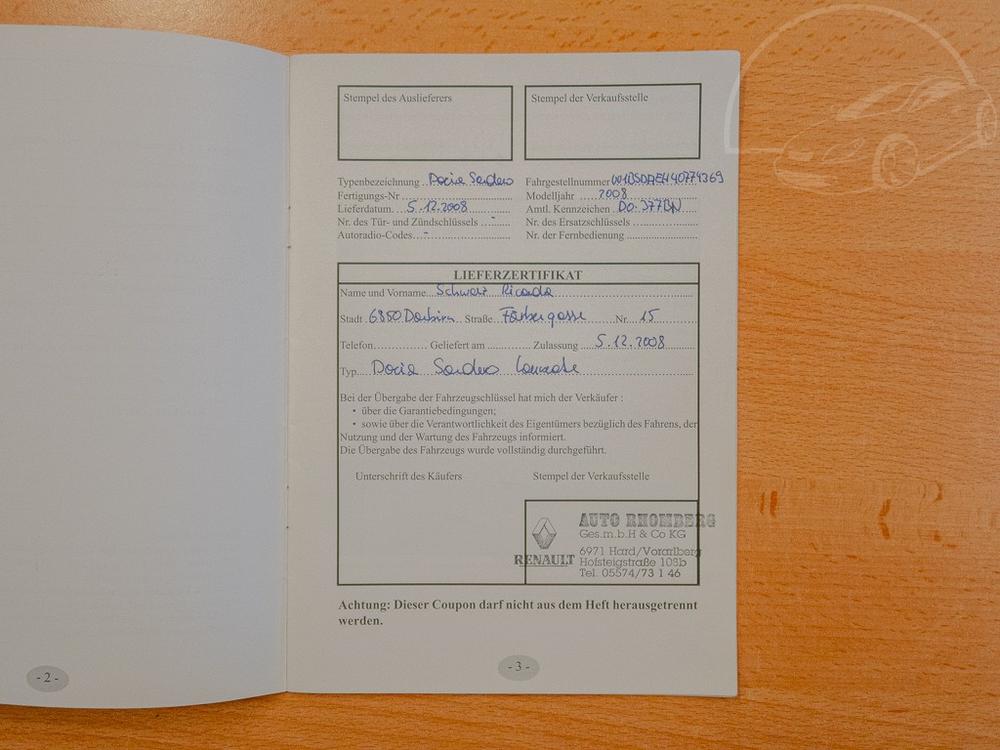 Stempel des Auslieferers
Stempel der Verkaufsstelle
Typenbezeichnung Dacia Sandero
Fahrgestellnummer
Fertigungs-Nr
Modelljahr 2008
Lieferdatum 5.12.2008
Amtl. Kennzeichen DO-377BN
Nr. des Tür- und Zündschlüssels -
Nr. des Ersatzschlüssels
Autoradio-Codes -
Nr. der Fernbedienung
LIEFERZERTIFIKAT
Name und Vorname Schwarz Ricarda
Stadt 6850 Dornbirn Straße Färbergasse Nr. 15
Telefon Geliefert am Zulassung 5.12.2008
Typ Dacia Sandero Laureate
Bei der Übergabe der Fahrzeugschlüssel hat mich der Verkäufer :
• über die Garantiebedingungen;
• sowie über die Verantwortlichkeit des Eigentümers bezüglich des Fahrens, der
Nutzung und der Wartung des Fahrzeugs informiert.
Die Übergabe des Fahrzeugs wurde vollständig durchgeführt.
Unterschrift des Käufers
Stempel der Verkaufsstelle
RENAULT
AUTO RHOMBERG
Ges.m.b.H & Co KG
6971 Hard/Vorarlberg
Hofsteigstraße 108b
Tel. 05574/73 1 46
Achtung: Dieser Coupon darf nicht aus dem Heft herausgetrennt
werden.
- 2 -
- 3 -